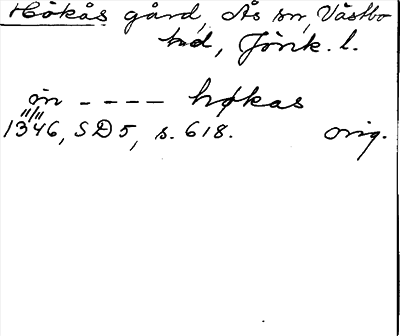 Hökås gård, Ås sn, Västbo
hd, Jönk. l.
in - - - - høkas
11/11
1346, SD5, s. 618. orig.